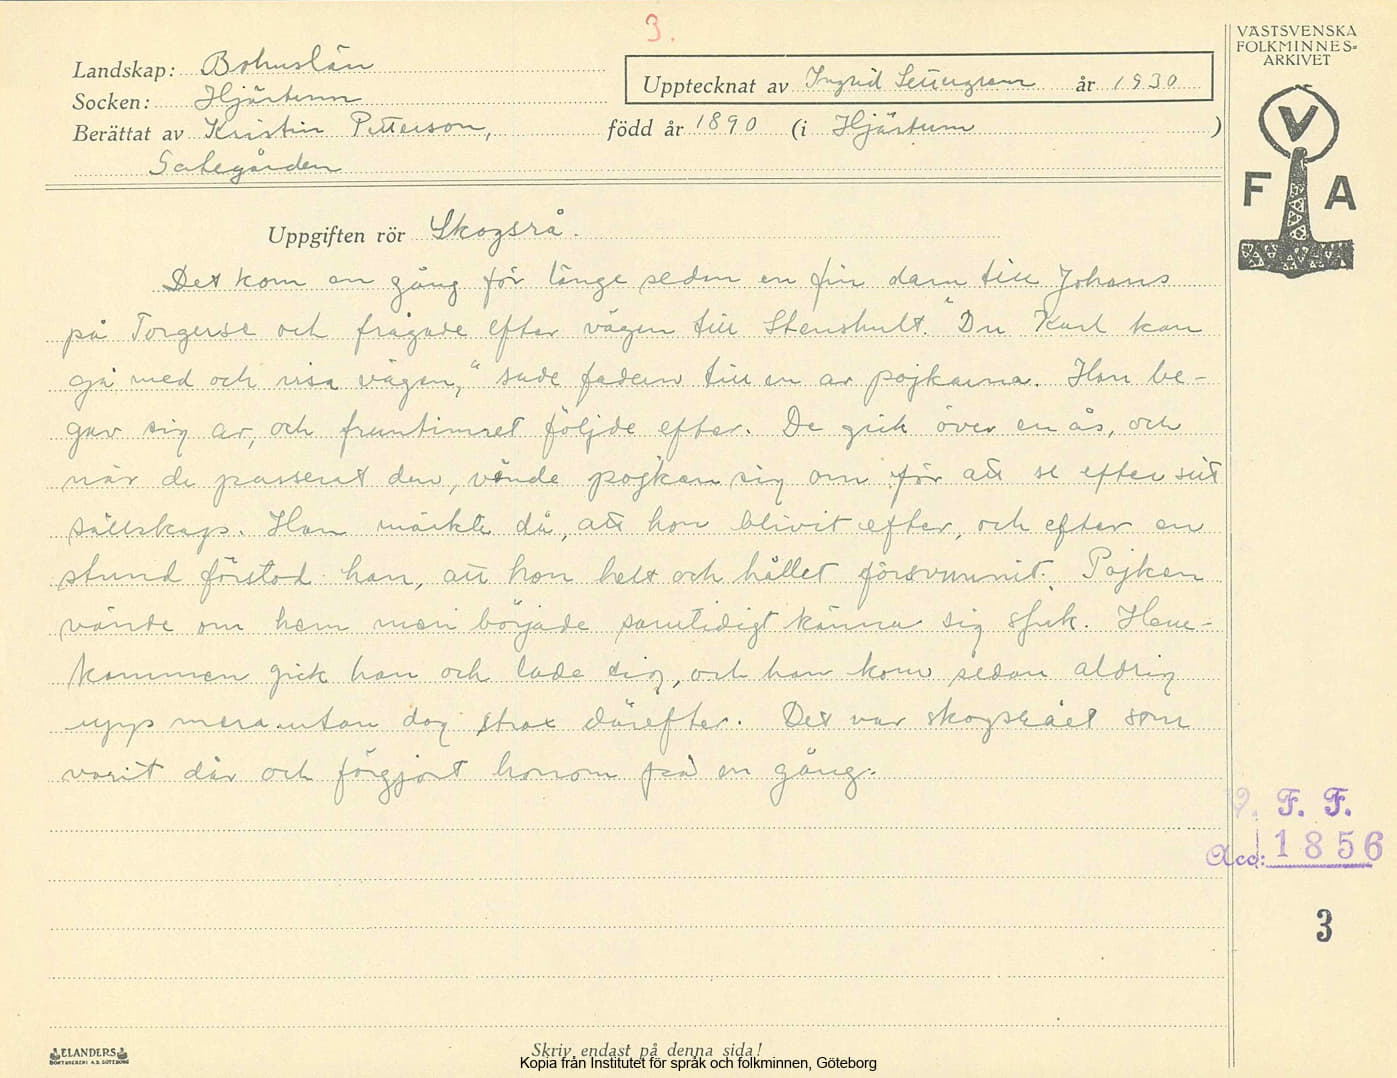 3.
VÄSTSVENSKA
FOLKMINNES=
ARKIVET
V
F A
Landskap: Bohuslän
Upptecknat av Ingrid år 1930
Socken: Hjärtum
Berättat av Kristin Petterson, född år 1890 (i Hjärtum )
Gategården
Uppgiften rör Skogsrå.
Det kom en gång för länge sedan en fin dam till Johans
på Torgerse och frågade efter vägen till Stenshult. "Du Karl kan
gå med och visa vägen," sade fadern till en av pojkarna. Han be-
gav sig av, och fruntimret följde efter. De gick över en ås, och
när de passerat den, vände pojken sig om för att se efter sitt
sällskap. Han märkte då, att hon blivit efter, och efter en
stund förstod han, att hon helt och hållet försvunnit. Pojken
vände om hem men började samtidigt känna sig sjuk. Hem-
kommen gick han och lade sig, och han kom sedan aldrig
upp mera utan dog strax därefter. Det var skogsrået som
varit där och förgjort honom på en gång.
V. F. F.
Acc: 1856
3
ELANDERS
BOKTRYCKERI A.B. GÖTEBORG
Skriv endast på denna sida!
Kopia från Institutet för språk och folkminnen, Göteborg